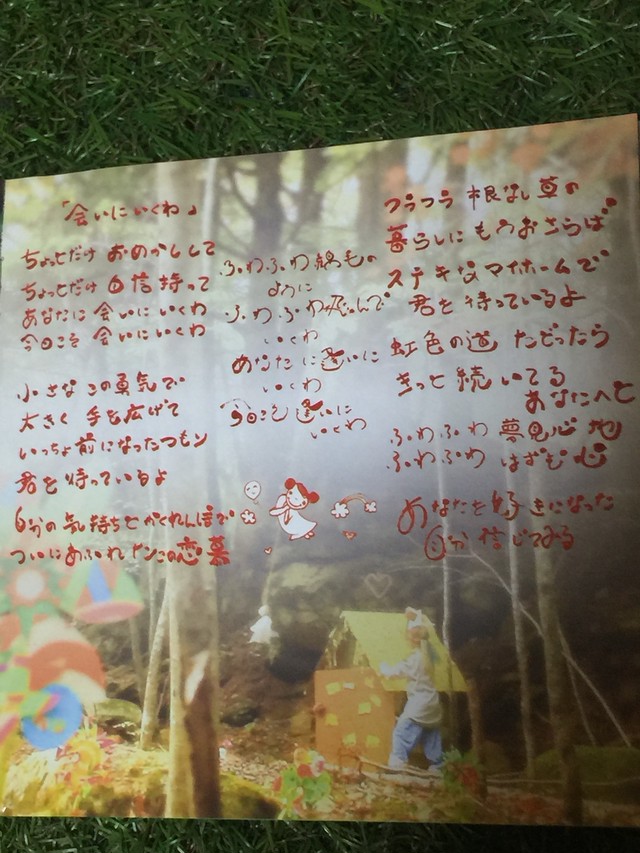 「会いにいくわ」
ちょっとだけ おめかしして
ちょっとだけ 自信持って
あなたに 会いにいくわ
今日こそ 会いにいくわ
小さな この勇気で
大きく 手を広げて
いっちょ前になったつもり
君を待っているよ
自分の気持ちとかくれんぼで
ついにあふれだしたこの恋慕
ふわふわ綿毛の
ように
ふわふわ飛んで
いくわ
あなたに逢いに
いくわ
今日こそ逢いに
いくわ
フラフラ 根なし草の
暮らしにもうおさらば
ステキなマイホームで
君を待っているよ
虹色の道 たどったら
きっと続いてる
あなたへと
ふわふわ 夢見心地
ふわふわ はずむ心
あなたを好きになった
自分 信じてみる